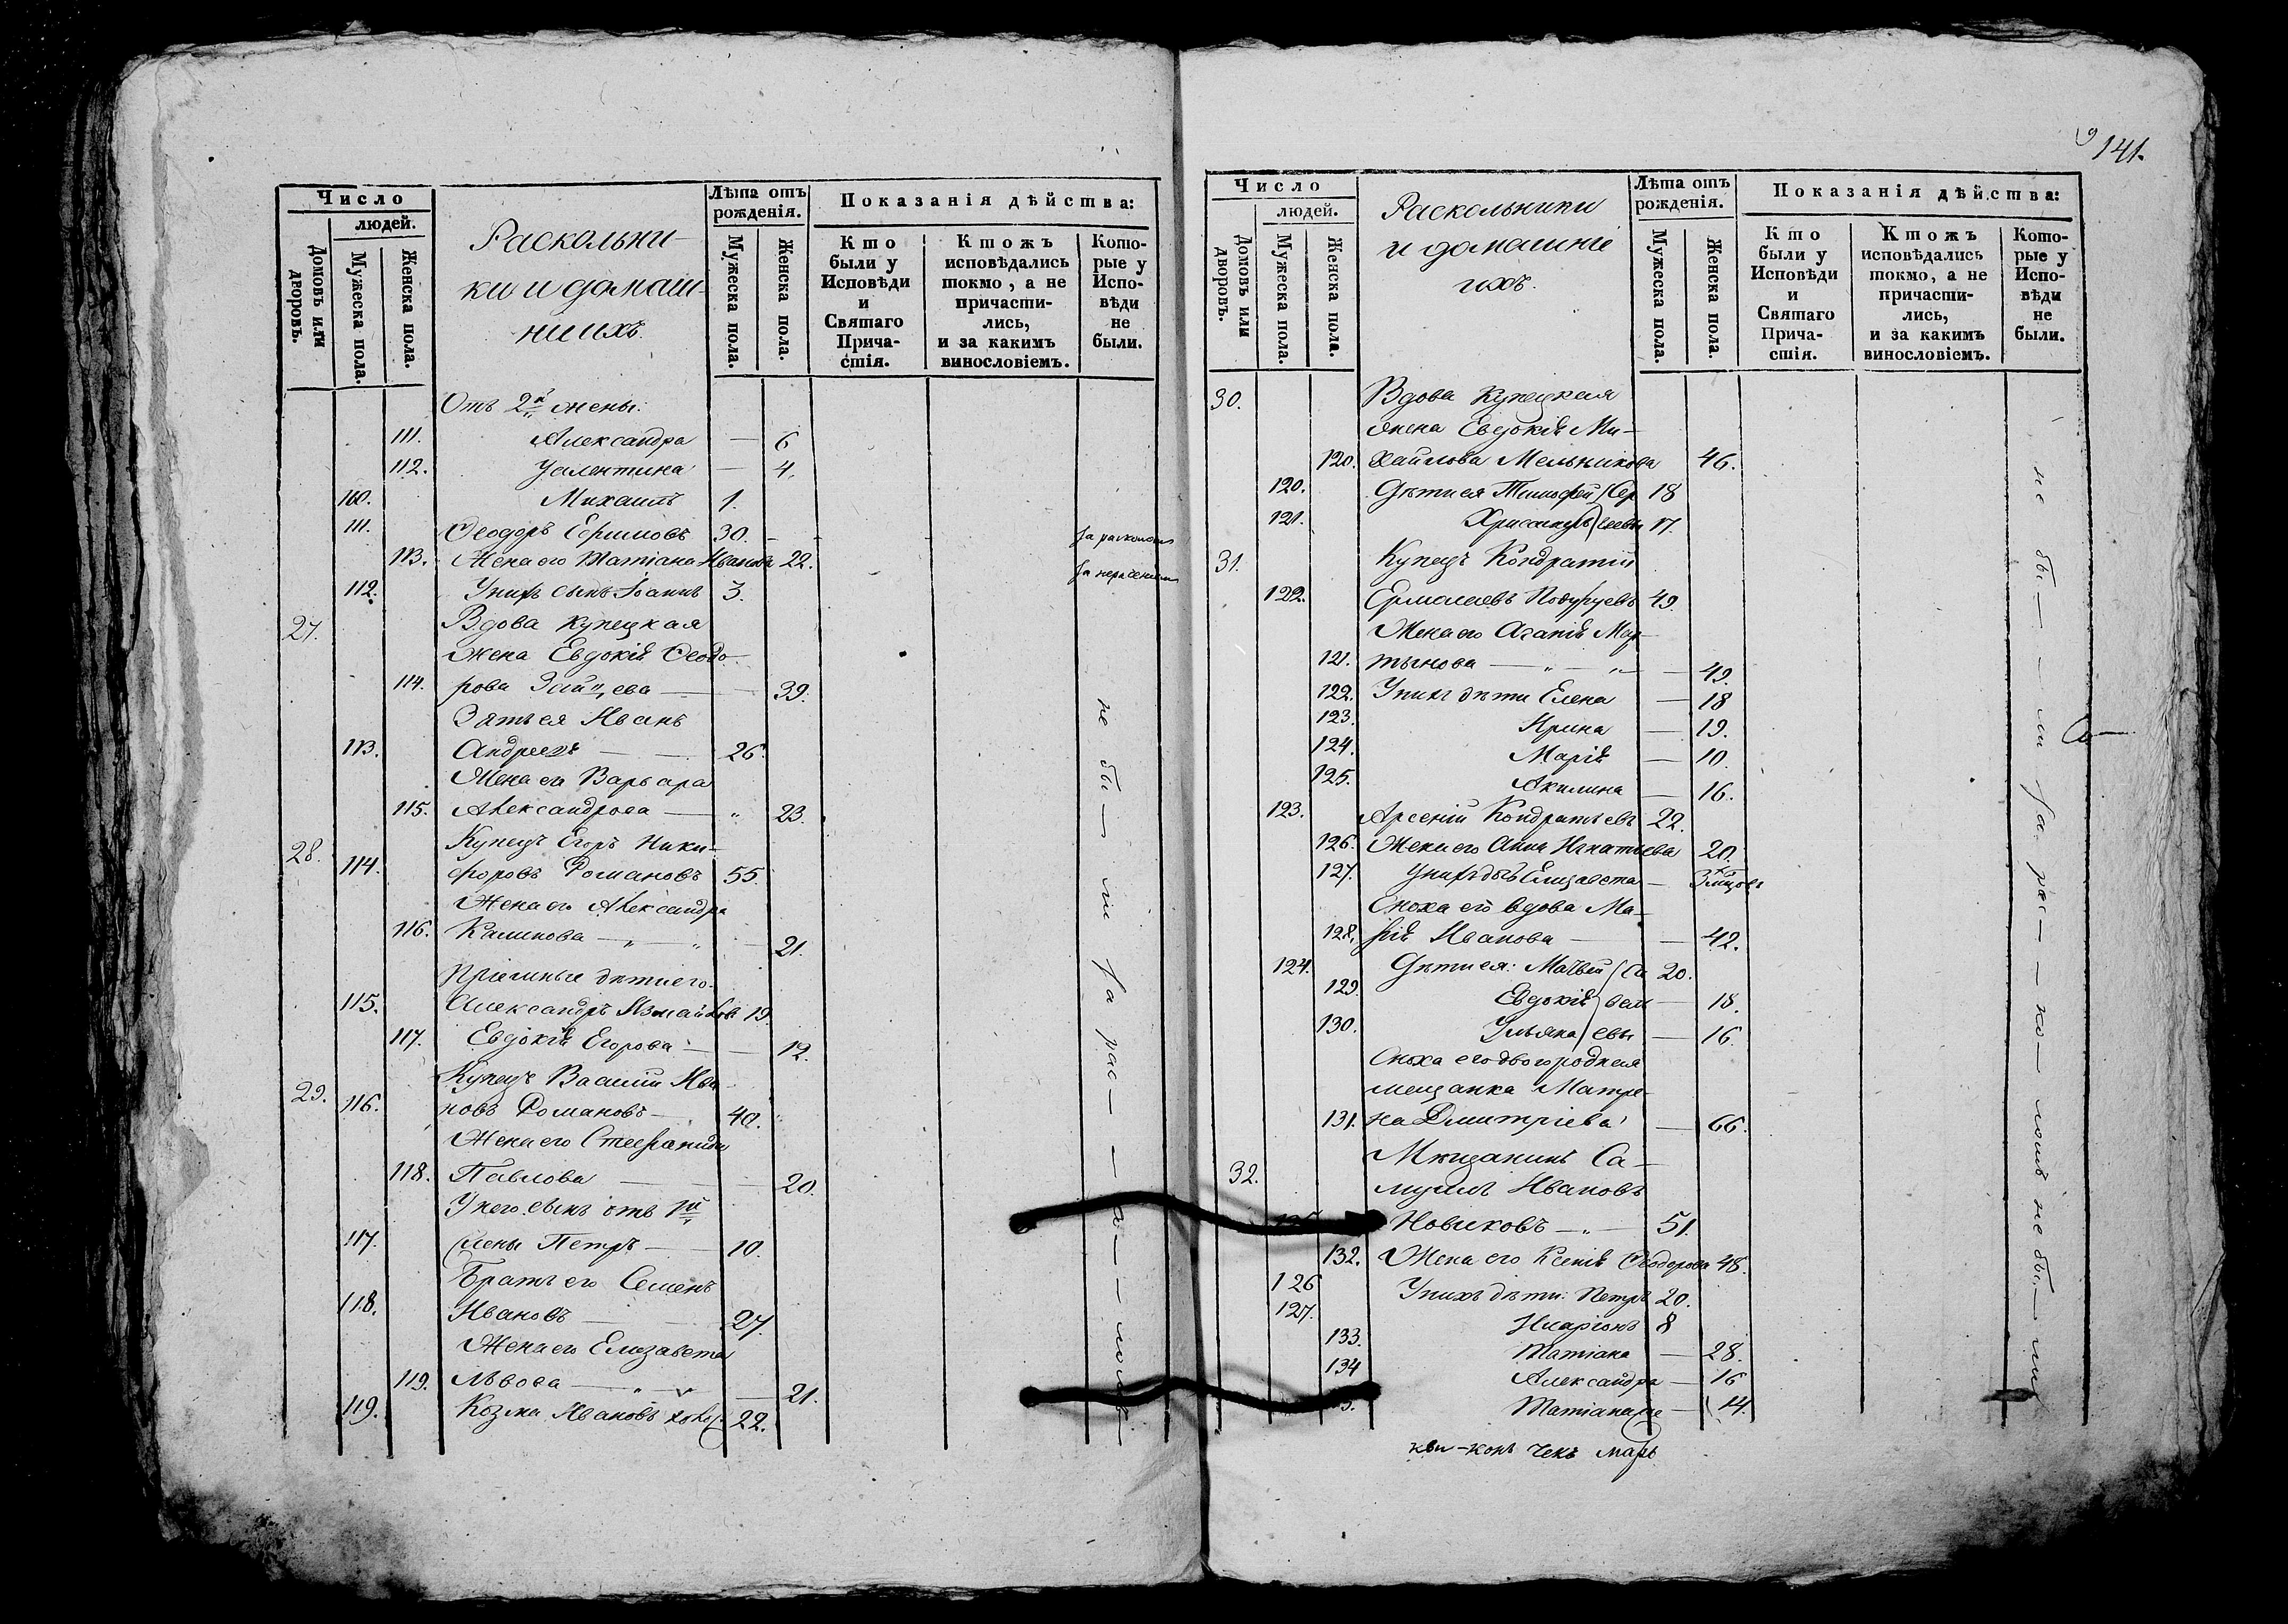 Число
людей.
Домовъ или дворовъ.
Мужеска пола.
Женска пола.
Раскольни-
ки и домаш-
ніи ихъ.
Лѣта отъ рожденія.
Мужеска пола.
Женска пола.
Показанія дѣйства:
Кто были у Исповѣди и Святаго Прича-стія.
Ктожъ исповѣдались токмо, а не причасти-лись, и за какимъ винословіемъ.
Кото-рые у Испо-вѣди не были.
Отъ 2й жены:
111. Александра — 6
112. Уалентина — 4.
110. Михаилъ 1.
111. Ѳеодоръ Ефимовъ 30. — За расколомъ
113. Жена его Татіана Иванова 22. За нераченіемъ
112. У нихъ сынъ Іоаннъ 3.
27. Вдова купецкая
жена Евдокія Ѳеодо-
114. рова Зайцева — 39.
Зять ея Иванъ
113. Андреевъ — 26.
Жена его Варвара
115. Александрова — 23.
28. Купецъ Егоръ Ники-
114. форовъ Романовъ 55.
Жена его Александра
116. Калинова — 21.
Пріемные дѣти его
115. Александръ Измайловъ 19.
117. Евдокія Егорова — 12.
29. Купецъ Василій Ива-
116. новъ Романовъ — 40.
Жена его Стефанида
118. Павлова — 20.
У него сынъ отъ 1й
117. жены Петръ — 10.
Братъ его Семенъ
118. Ивановъ — 27.
Жена его Елизавета
119. Львова — 21.
119. Козма Ивановъ холос. 22.
не бы — ли за рас — ко — ломъ
141.
Число
людей.
Домовъ или дворовъ.
Мужеска пола.
Женска пола.
Раскольники
и домашніе
ихъ.
Лѣта отъ рожденія.
Мужеска пола.
Женска пола.
Показанія дѣйства:
Кто были у Исповѣди и Святаго Прича-стія.
Ктожъ исповѣдались токмо, а не причасти-лись, и за какимъ винословіемъ.
Кото-рые у Испо-вѣди не были.
30. Вдова Купецкая
жена Евдокія Ми-
120. хайлова Мельникова 46.
120. Дѣти ея Тимофей / Сер 18
121. Хрисанфъ / геевы 17.
31. Купецъ Кондратій
122. Ермолаевъ Подуруевъ 49.
Жена его Агапія Мар-
121. тынова — 49.
122. У нихъ дѣти Елена — 18
123. Ирина — 19.
124. Марія — 10.
125. Акилина — 16.
123. Арсеній Кондратьевъ 22.
126. Жена его Анна Игнатьева 20.
127. У нихъ дочь Елизавета — 3хъ мѣсяцовъ
Сноха его вдова Ма-
128. рія Иванова — 42.
124. Дѣти ея: Матвѣй / Са 20.
129. Евдокія / вель — 18.
130. Ульяна / евы — 16.
Сноха его двоюродная
мещанка Матре-
131. на Дмитріева — 66.
32. Мещанинъ Са-
муилъ Ивановъ
Новиковъ — 51.
132. Жена его Ксенія Ѳеодорова 48.
126 У нихъ дѣти: Петръ 20.
127. Иларіонъ 8
133. Татіана — 28.
134 Александра — 16
Татіана же — 14.
не бы — ли за рас — ко — ломъ не бы — ли